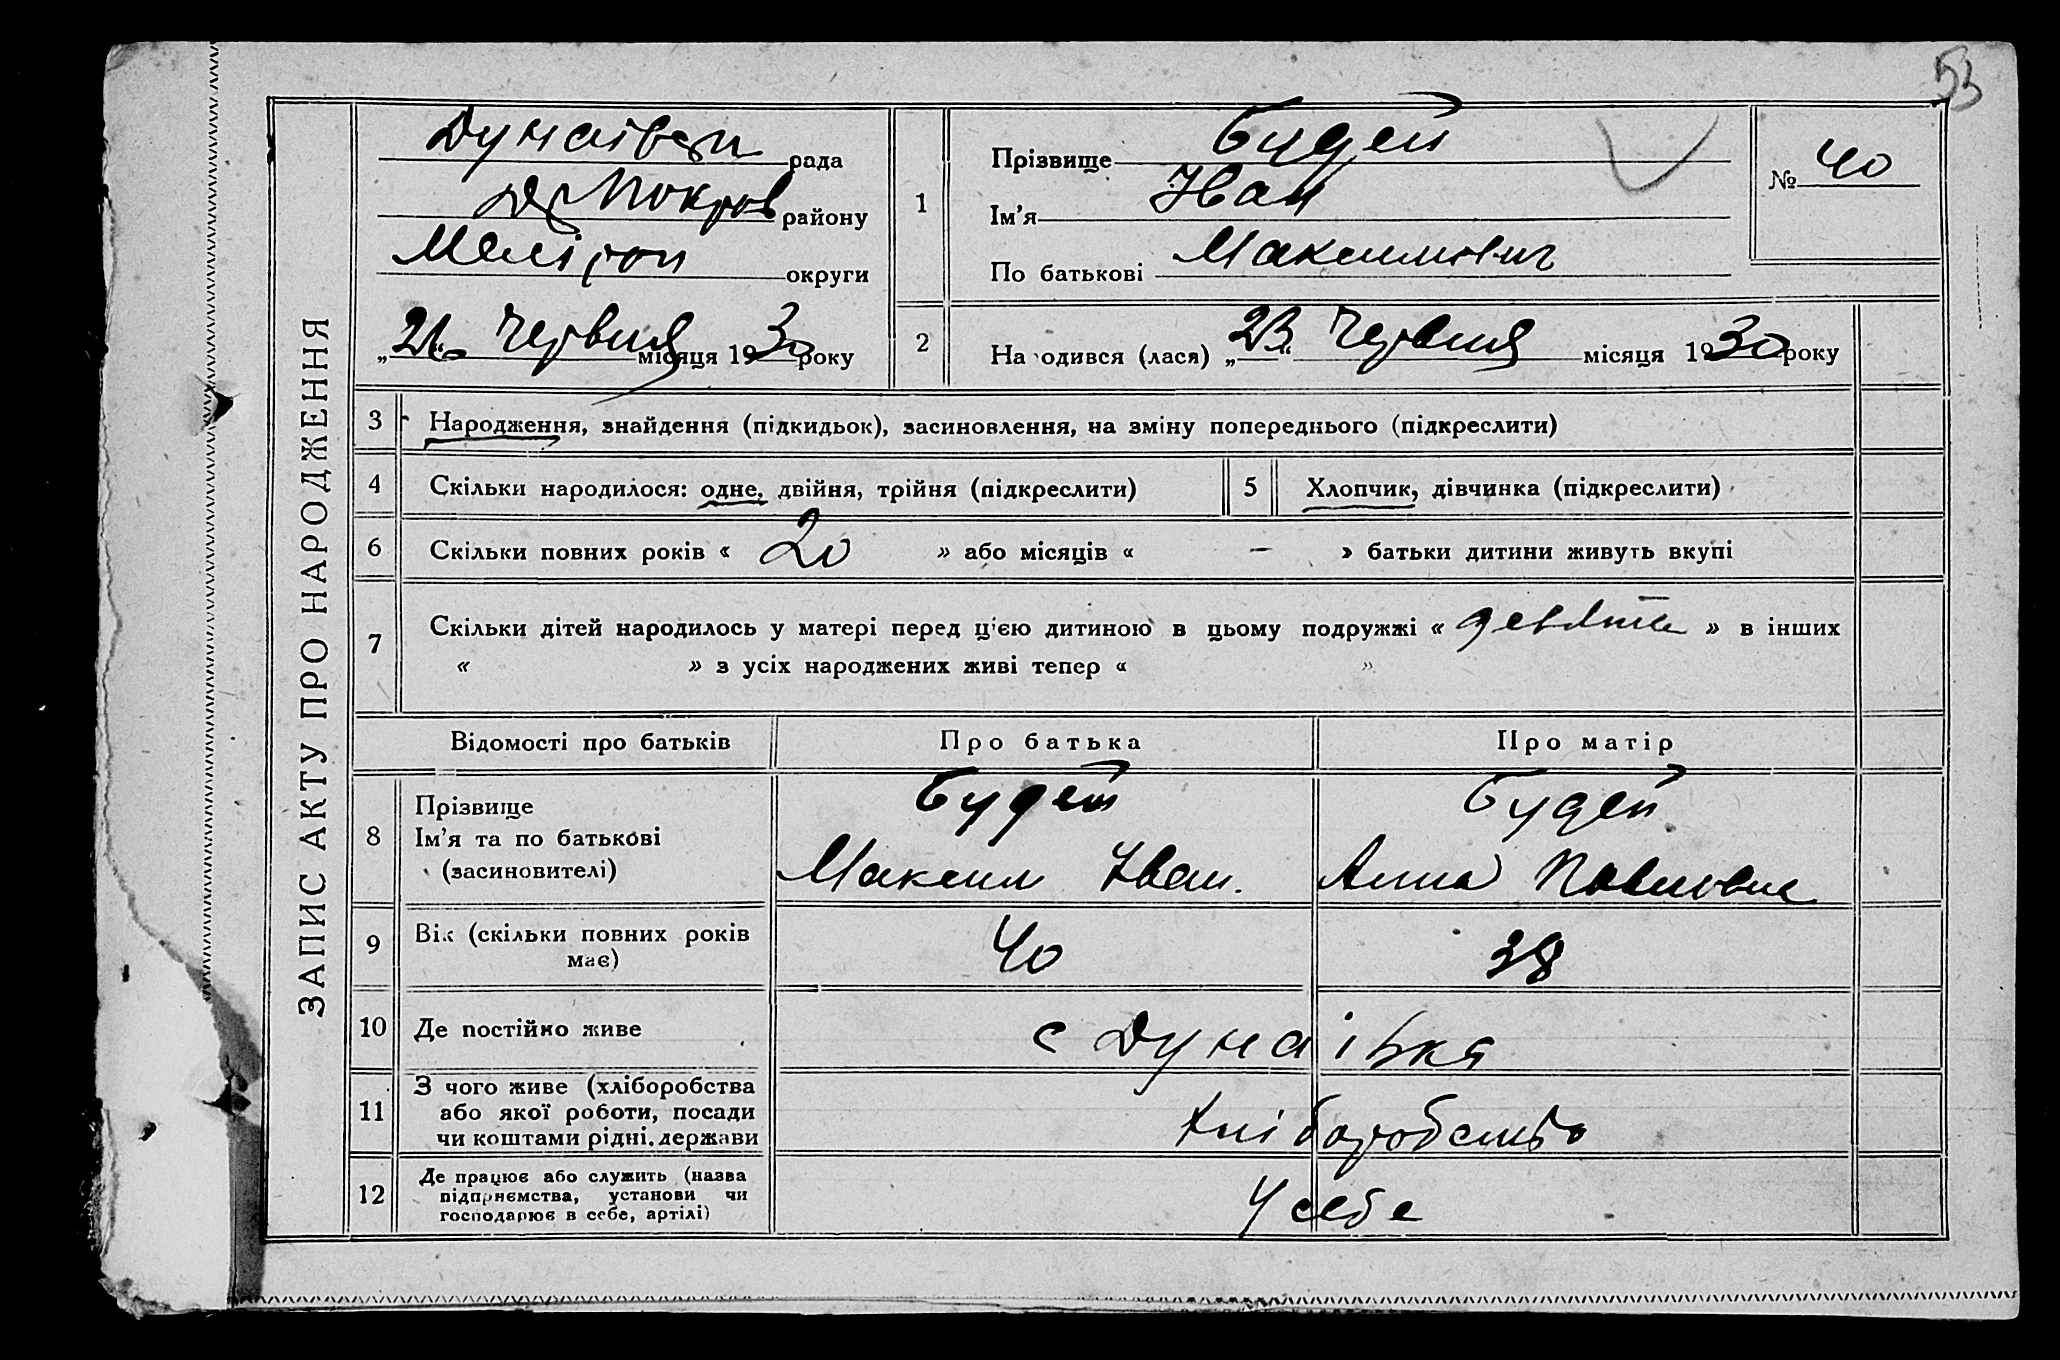 53
ЗАПИС АКТУ ПРО НАРОДЖЕННЯ
Дунаївськ рада
району
Меліτоп округи
Червня місяця 1930 року
1
Прізвище Будей
Ім'я Иван
По батькові Максимович
№ 40
2
На одився (лася) „23“ Червня місяця 1930 року
3 Народження, знайдення (підкидьок), засиновлення, на зміну попереднього (підкреслити)
4 Скільки народилося: одне, двійня, трійня (підкреслити) 5 Хлопчик, дівчинка (підкреслити)
6 Скільки повних років « 20 » або місяців « – » батьки дитини живуть вкупі
7 Скільки дітей народилось у матері перед цією дитиною в цьому подружжі « девята » в інших
« » з усіх народжених живі тепер « »
Відомості про батьків Про батька Про матір
8 Прізвище
Ім'я та по батькові
(засиновителі)
Будей
Максим Иван.
Будей
Анна Павловна
9 Вік (скільки повних років
має)
40 38
10 Де постійно живе с Дунаівка
11 З чого живе (хліборобства
або якої роботи, посади
чи коштами рідні, держави
хліборобство
12 Де працює або служить (назва
підприємства, установи чи
господарює в себе, артілі)
У себе